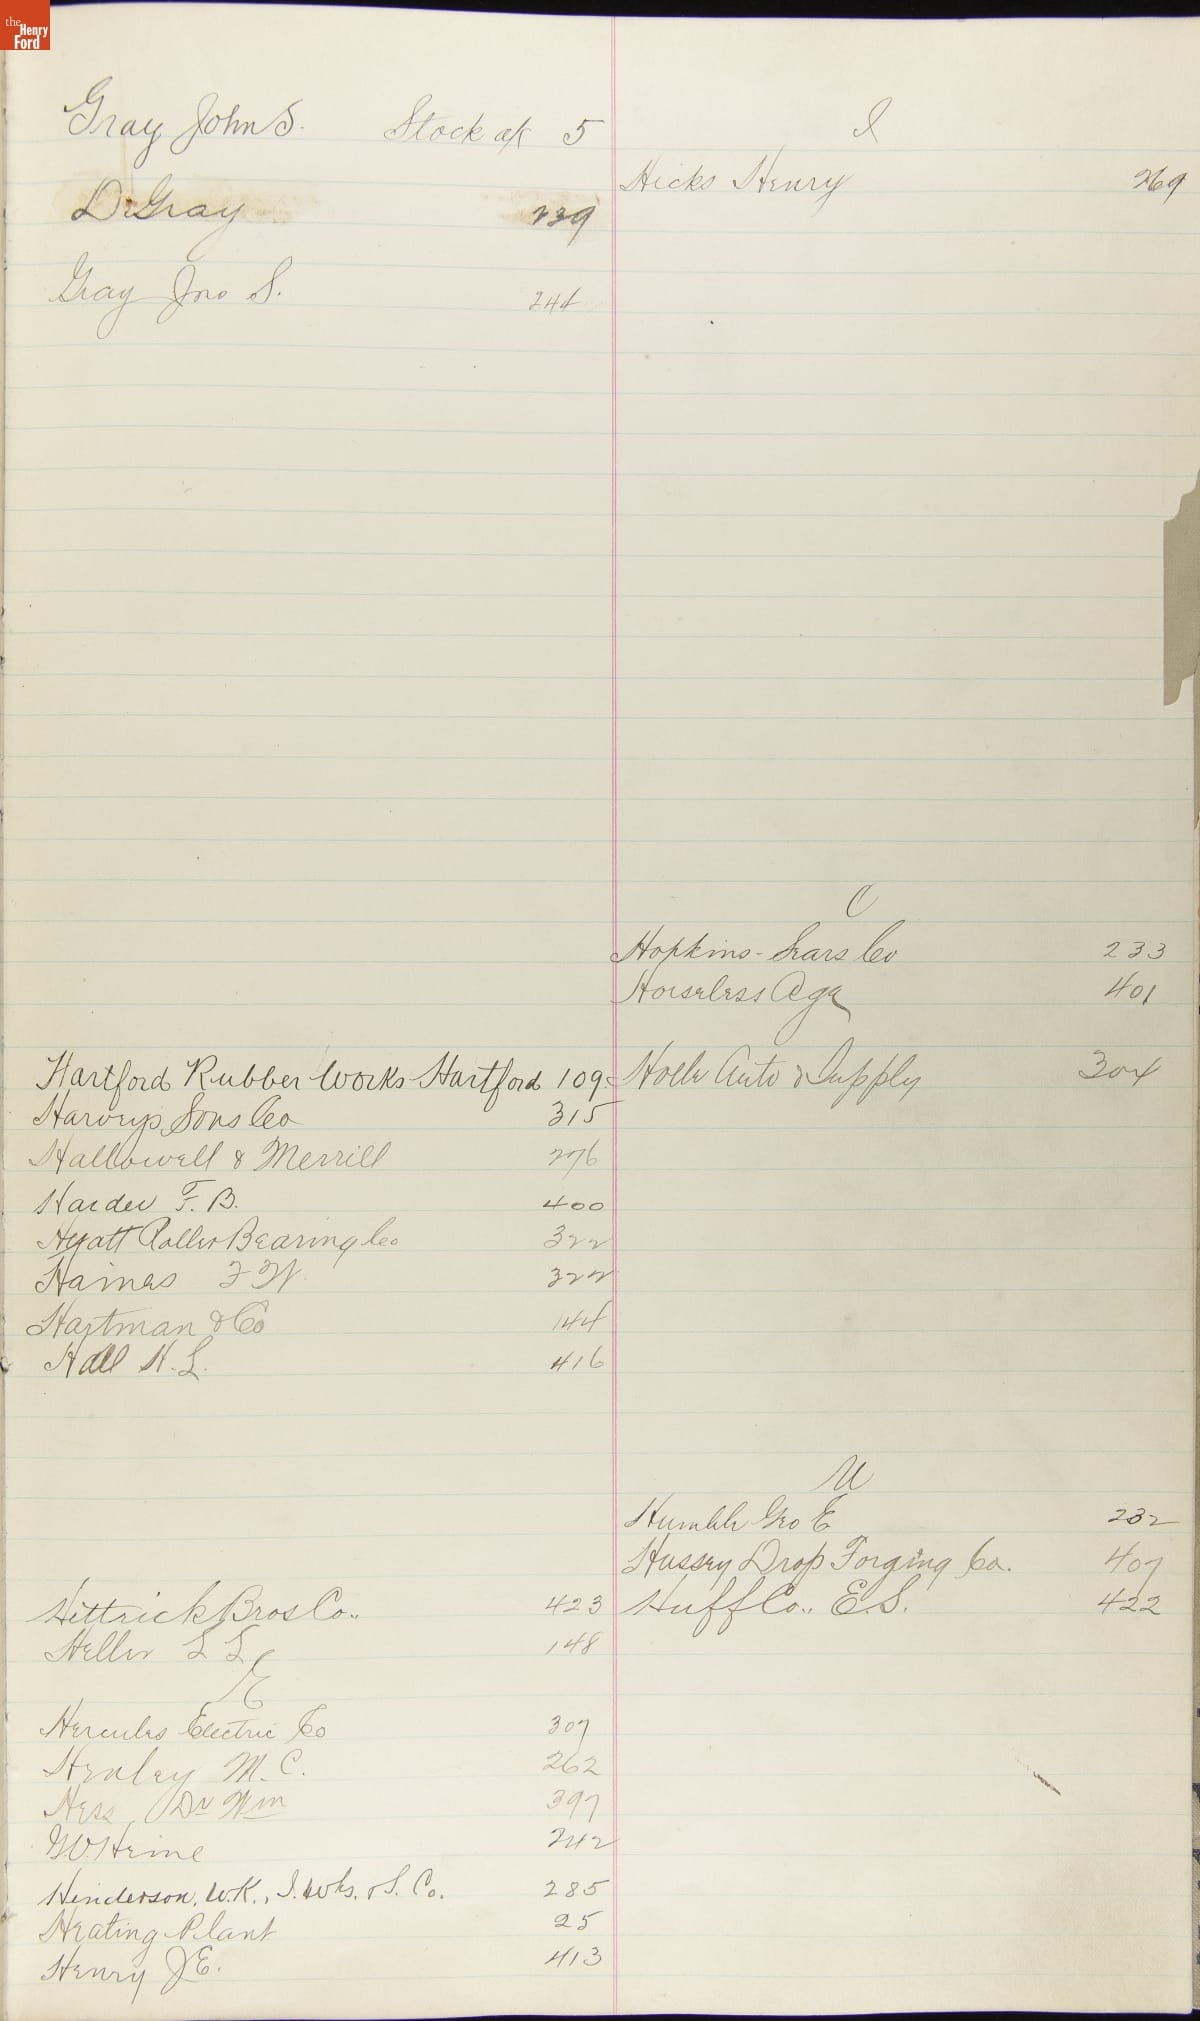 the Henry Ford
Gray John S. Stock a/c 5
Dr Gray 239
Gray Jno S. 244
Hartford Rubber Works Hartford 109
Harveys Sons Co 315
Hallowell & Merrill 276
Harder F. B. 400
Hyatt Roller Bearing Co 322
Haines F W. 322
Hartman & Co 144
Hall H. L. 416
Hettrick Bros Co.. 423
Heller L L 148
E
Hercules Electric Co 307
Henley M. C. 262
Hess Dr Wm 397
G.W. Heine 242
Henderson, W.K., I. Wks. & S. Co. 285
Heating Plant 25
Henry J E. 413
I
Hicks Henry 269
O
Hopkins-Sears Co 233
Horseless Age 401
Auto & Supply 304
U
Humble Geo E 232
Hussey Drop Forging Co. 407
Huff Co., E.S. 422